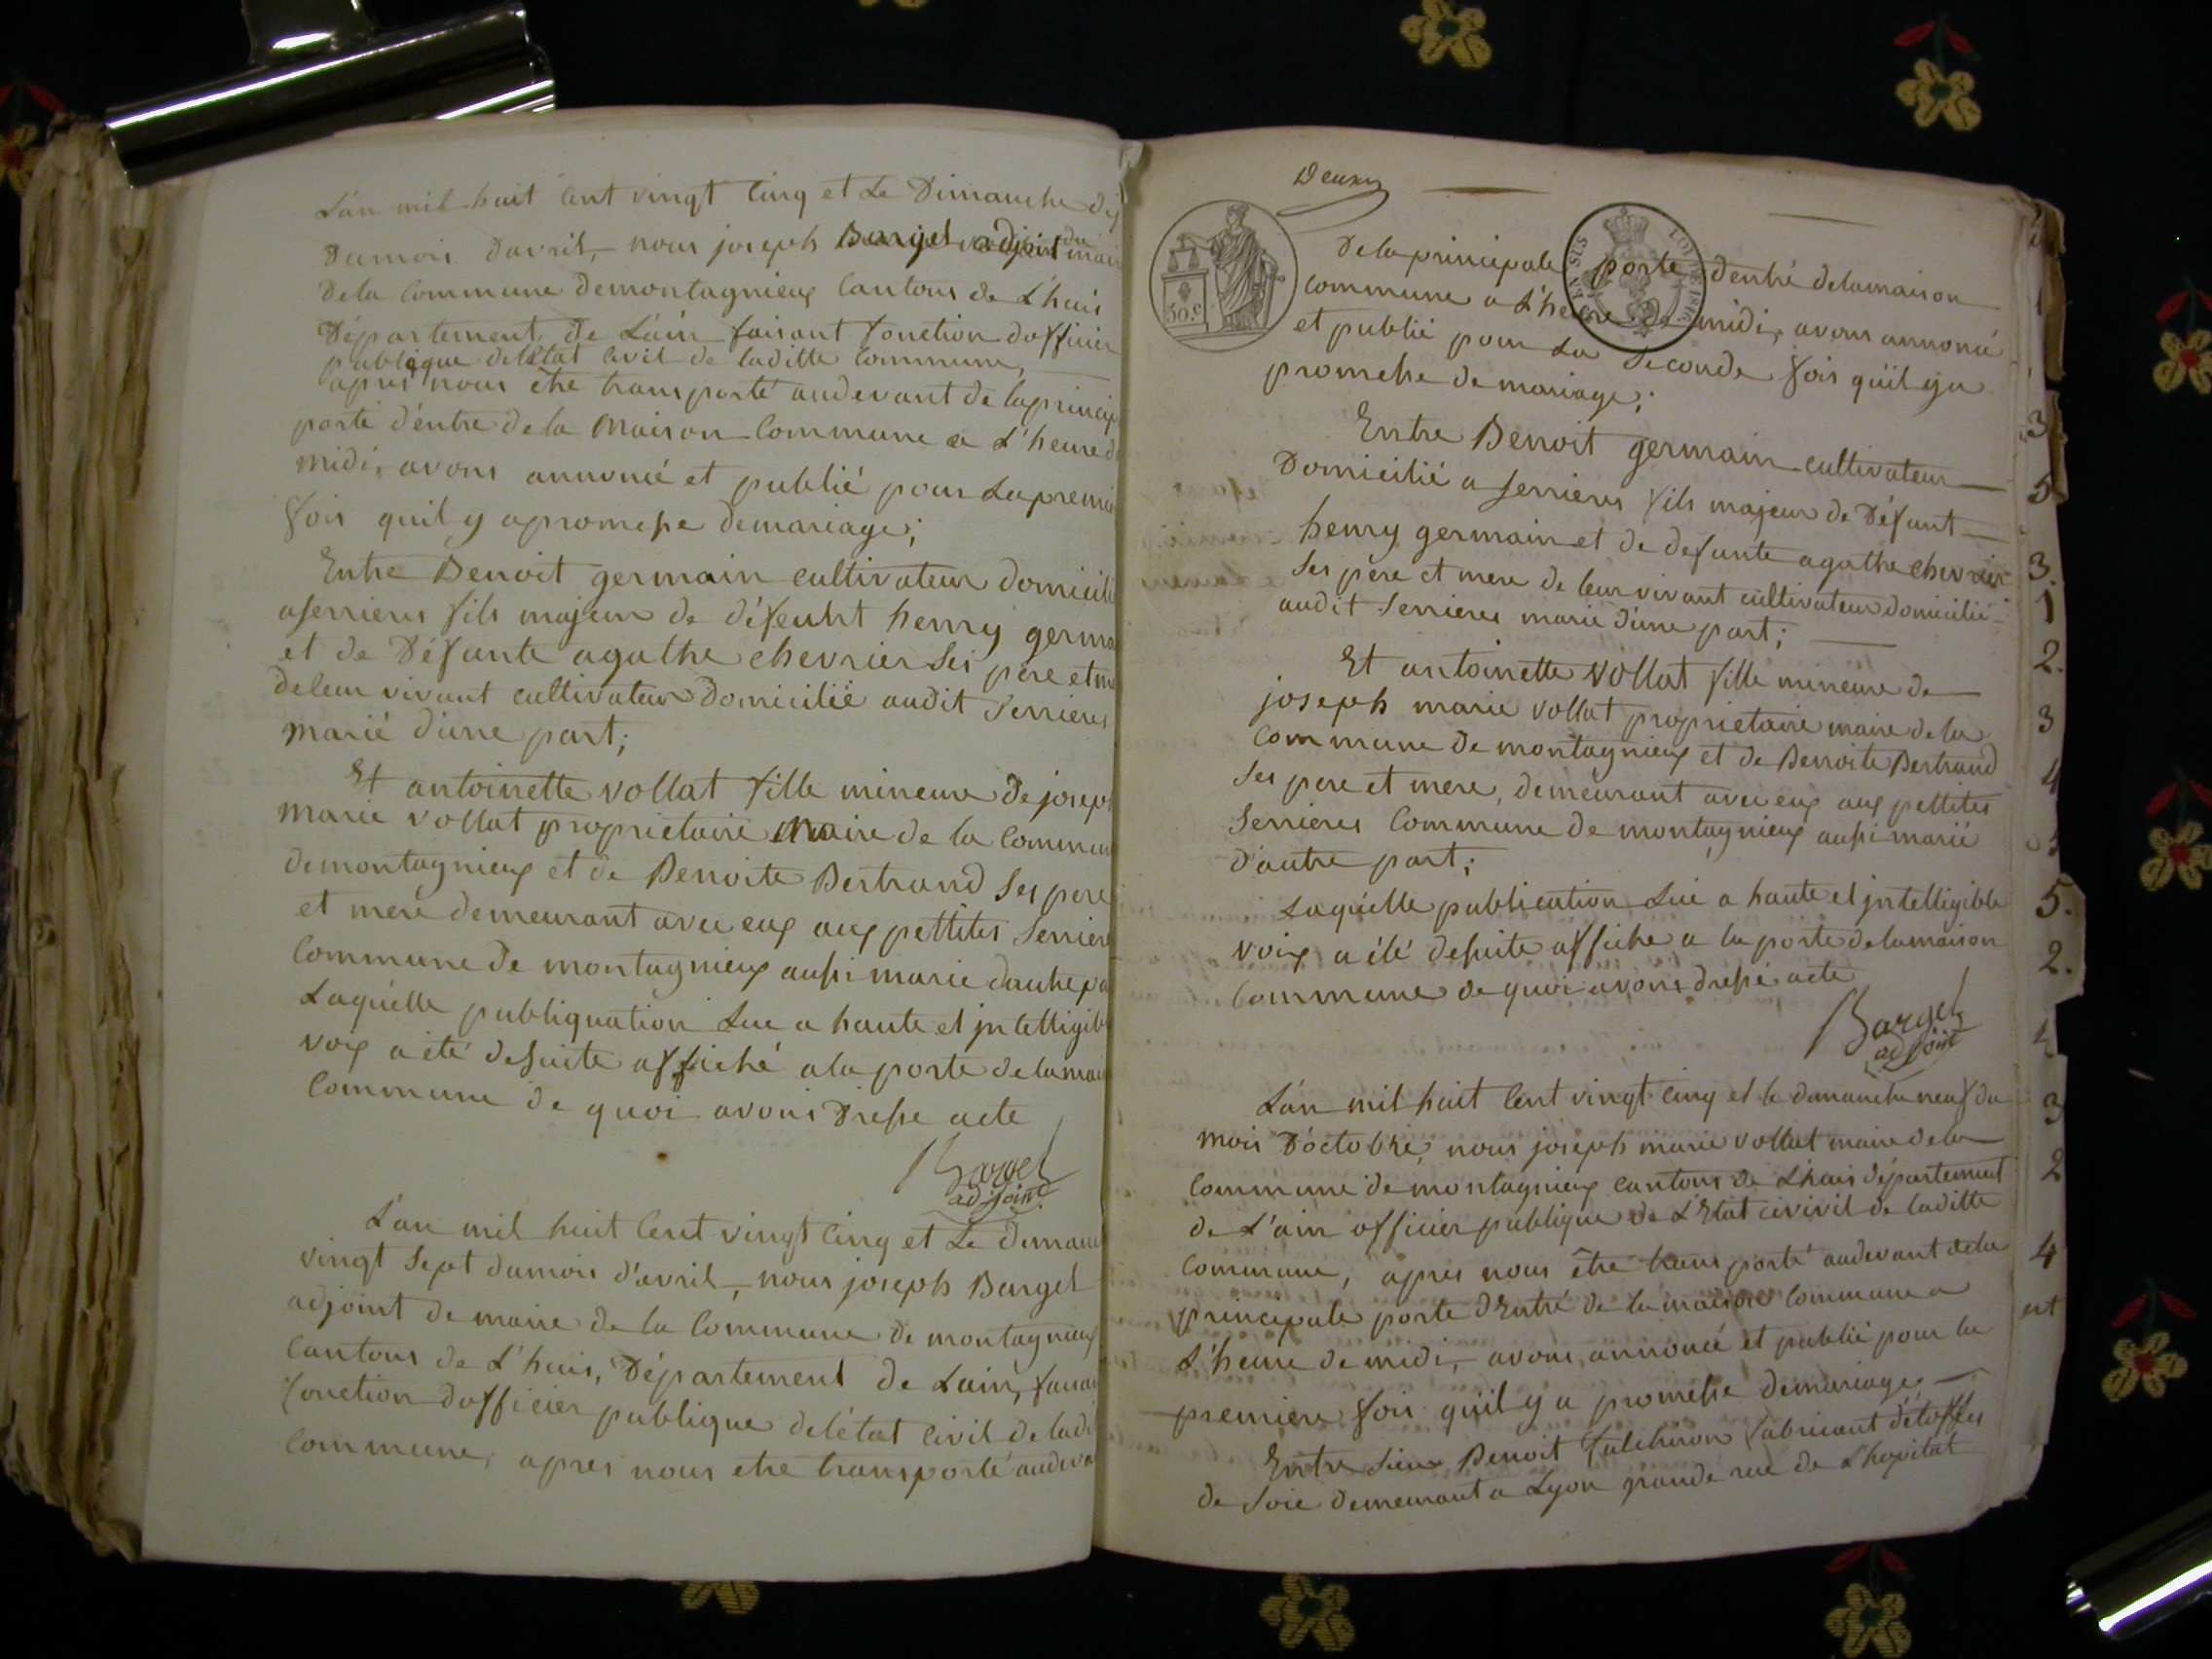 L'an mil huit Cent vingt Cinq et Le Dimanche dix
Dumois Davril, nous joseph Bargel adjoint du maire
Dela Commune Demontagnieux Cantons de L'huis
Département de L'ain faisant fonction dofficier
publique delEtat Civil de laditte Commune,
apres nous être transporté audevant de laprincip
porte d'entre dela Maison Commune a L'heure d
midi, avons annoncé et publié pour Lapremie
fois quil y apromesse demariage;
Entre Benoit germain cultivateur domicili
aserrieres fils majeur de défeunt henry germa
et de Défunte agathe chevrier Ses père et me
deleur vivant cultivateur Domicilié audit Serrieres
marié d'une part;
Et antoinette vollat fille mineure de joseph
marie vollat proprietaire Maire de la Commun
demontagnieux et de Benoite Bertrand Ses pere
et mere demeurant avec eux aux pettites Serriere
Commune de montagnieux aussi marié dautre pa
Laquelle publiquation Lue a haute et jntelligibl
voix a été desuite affiché ala porte delamais
Commune de quoi avons Dressé acte
Bargel
adjoint
L'an mil huit Cent vingt Cinq et Le dimanc
vingt Sept dumois d'avril, nous joseph Bargel
adjoint de maire de la Commune de montagnieux
Cantons de L'huis, Département de Lain, faisan
fonction dofficier publique del'état Civil de ladi
Commune, apres nous etre transporté audeva
Deux
30.c
EN SUS
LOI DE 1816
Dela principale porte d'entré delamaison
Commune a L'heure de midi, avons annoncé
et publié pour La Seconde fois qu'il ya
promesse de mariage;
Entre Benoit germain cultivateur
Domicilié a Serrieres fils majeur de Défunt
henry germain et de defunte agathe chevrier
Ses père et mere de leur vivant cultivateur domicilié
audit Serrieres marié d'une part;
Et antoinette vollat fille mineure de
joseph marie vollat proprietaire maire dela
Commune de montagnieux et de Benoite Bertrand
Ses pere et mere, demeurant avec eux aux pettites
Serrieres Commune de montagnieux aussi marié
d'autre part;
Laquelle publication Lue a haute et jntelligible
voix a été desuite affiche a la porte delamaison
Commune de quoi avons dressé acte
Bargel
adjoint
L'an mil huit Cent vingt Cinq et le dimanche neuf du
mois D'octobre, nous joseph marie vollat maire dela
Commune de montagnieux cantons de Lhuis département
de L'ain officier publique de L'Etat civivil de laditte
Commune, apres nous être transporté audevant dela
principale porte dEntré de la maison Commune a
L'heure de midi, avons annoncé et publié pour la
premiere fois qu'il y a promesse demariage
Entre Sieur Benoit falchiron fabricant d'étoffes
de Soie demeurant a Lyon grande rue de Lhopital
3
5
3.
1
2.
3
4
5.
2.
3
2
4